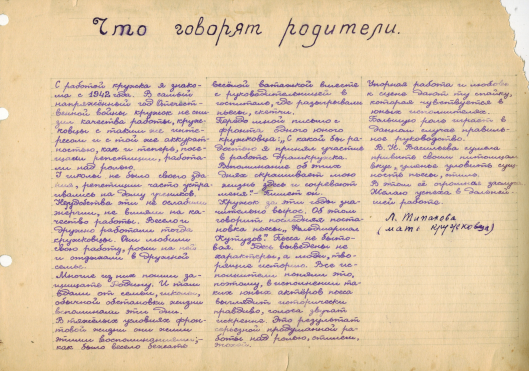 Что говорят родители.
С работой кружка я знако-
ма с 1942 года. В самый
напряжённый год Отечест-
венной войны кружок не сни-
зил качества работы, круж-
ковцы с таким же инте-
ресом и с той же аккурат-
ностью, как и теперь, посе-
щали репетиции, работа-
ли над ролью.
У школы не было своего зда-
ния, репетиции часто устра-
ивались на дому
Неудобства эти не ослабили
энергии, не влияли на ка-
чество работы. Весело и
дружно работали тогда
кружковцы. Они любили
свою работу, росли на ней
и отдыхали в дружной
семье.
Многие из них пошли за-
щищать Родину. И там
вдали от семьи, школы,
обычной обстановки жизни
вспоминали эти дни.
В тяжёлых условиях фрон-
товой жизни они жили
этими воспоминаниями;
как было весело бежать
весёлой ватажкой вместе
с руководительницей в
госпиталь, где разыгрывали
пьесы, скетчи.
Передо мной письмо с
фронта одного юного
кружковца: „С какой бы ра-
достью я принял участие
в работе драмкружка.
Вспоминание об этих
днях скрашивает мою
жизнь здесь и согревает
меня" - пишет он.
Кружок за эти годы зна-
чительно вырос. Об этом
говорит последняя поста-
новка пьесы „Фельдмаршал
Кутузов". Пьеса не быто-
вая. Здесь выведены не
характеры, а люди, тво-
рящие историю. Все ис-
полнители поняли это,
поэтому, в исполнении та-
ких юных актёров пьеса
выглядит исторически
правдиво, голоса звучат
искренно. Это результат
серьёзной продуманной ра-
боты над ролью, стилем,
эпохой.
Упорная работа и любовь
к сцене дают ту спайку,
которая чувствуется в
юных исполнителях.
Большую роль играет в
данном случае правиль-
ное руководство.
В. Н. Васильева сумела
привить своим питомцам
вкус, умение уловить сущ-
ность пьесы, стиль.
В этом её огромная заслуга
Желаю успеха в дальней-
шей работе.
(мать кружковца)